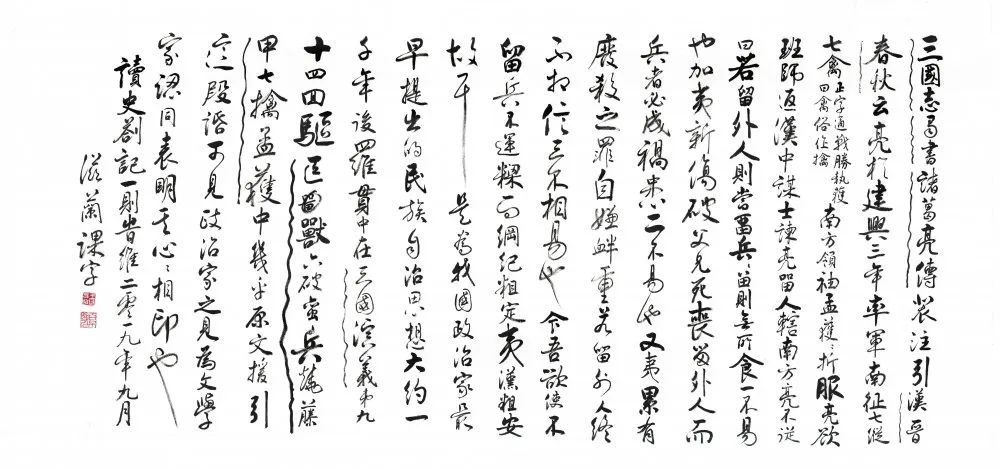 三國志蜀書諸葛亮傳裴注引漢晉
春秋云亮於建興三年率軍南征七縱
七禽
正字通戰勝執獲
曰禽俗作擒
南方領袖孟獲〻折服亮欲
班師返漢中謀士諫亮留人轄南方亮不從
曰若留外人則當留兵留則無所食一不易
也加夷新傷破父兄死喪留外人而
兵者必成禍患二不易也又夷累有
廢殺之罪自嫌釁重若留外人終
不相信三不相易也今吾欲使不
留兵不運糧而綱紀粗定夷漢粗安
故耳 是為我國政治家最
早提出的民族自治思想大約一
千年後羅貫中在三國演義第九
十四回驅巨獸六破蠻兵燒藤
甲七擒孟獲中幾乎原文援引
這段話可見政治家之見為文學
家認同表明其心〻相印也
讀史劄記一則時維二零一九年九月
滋蘭課字